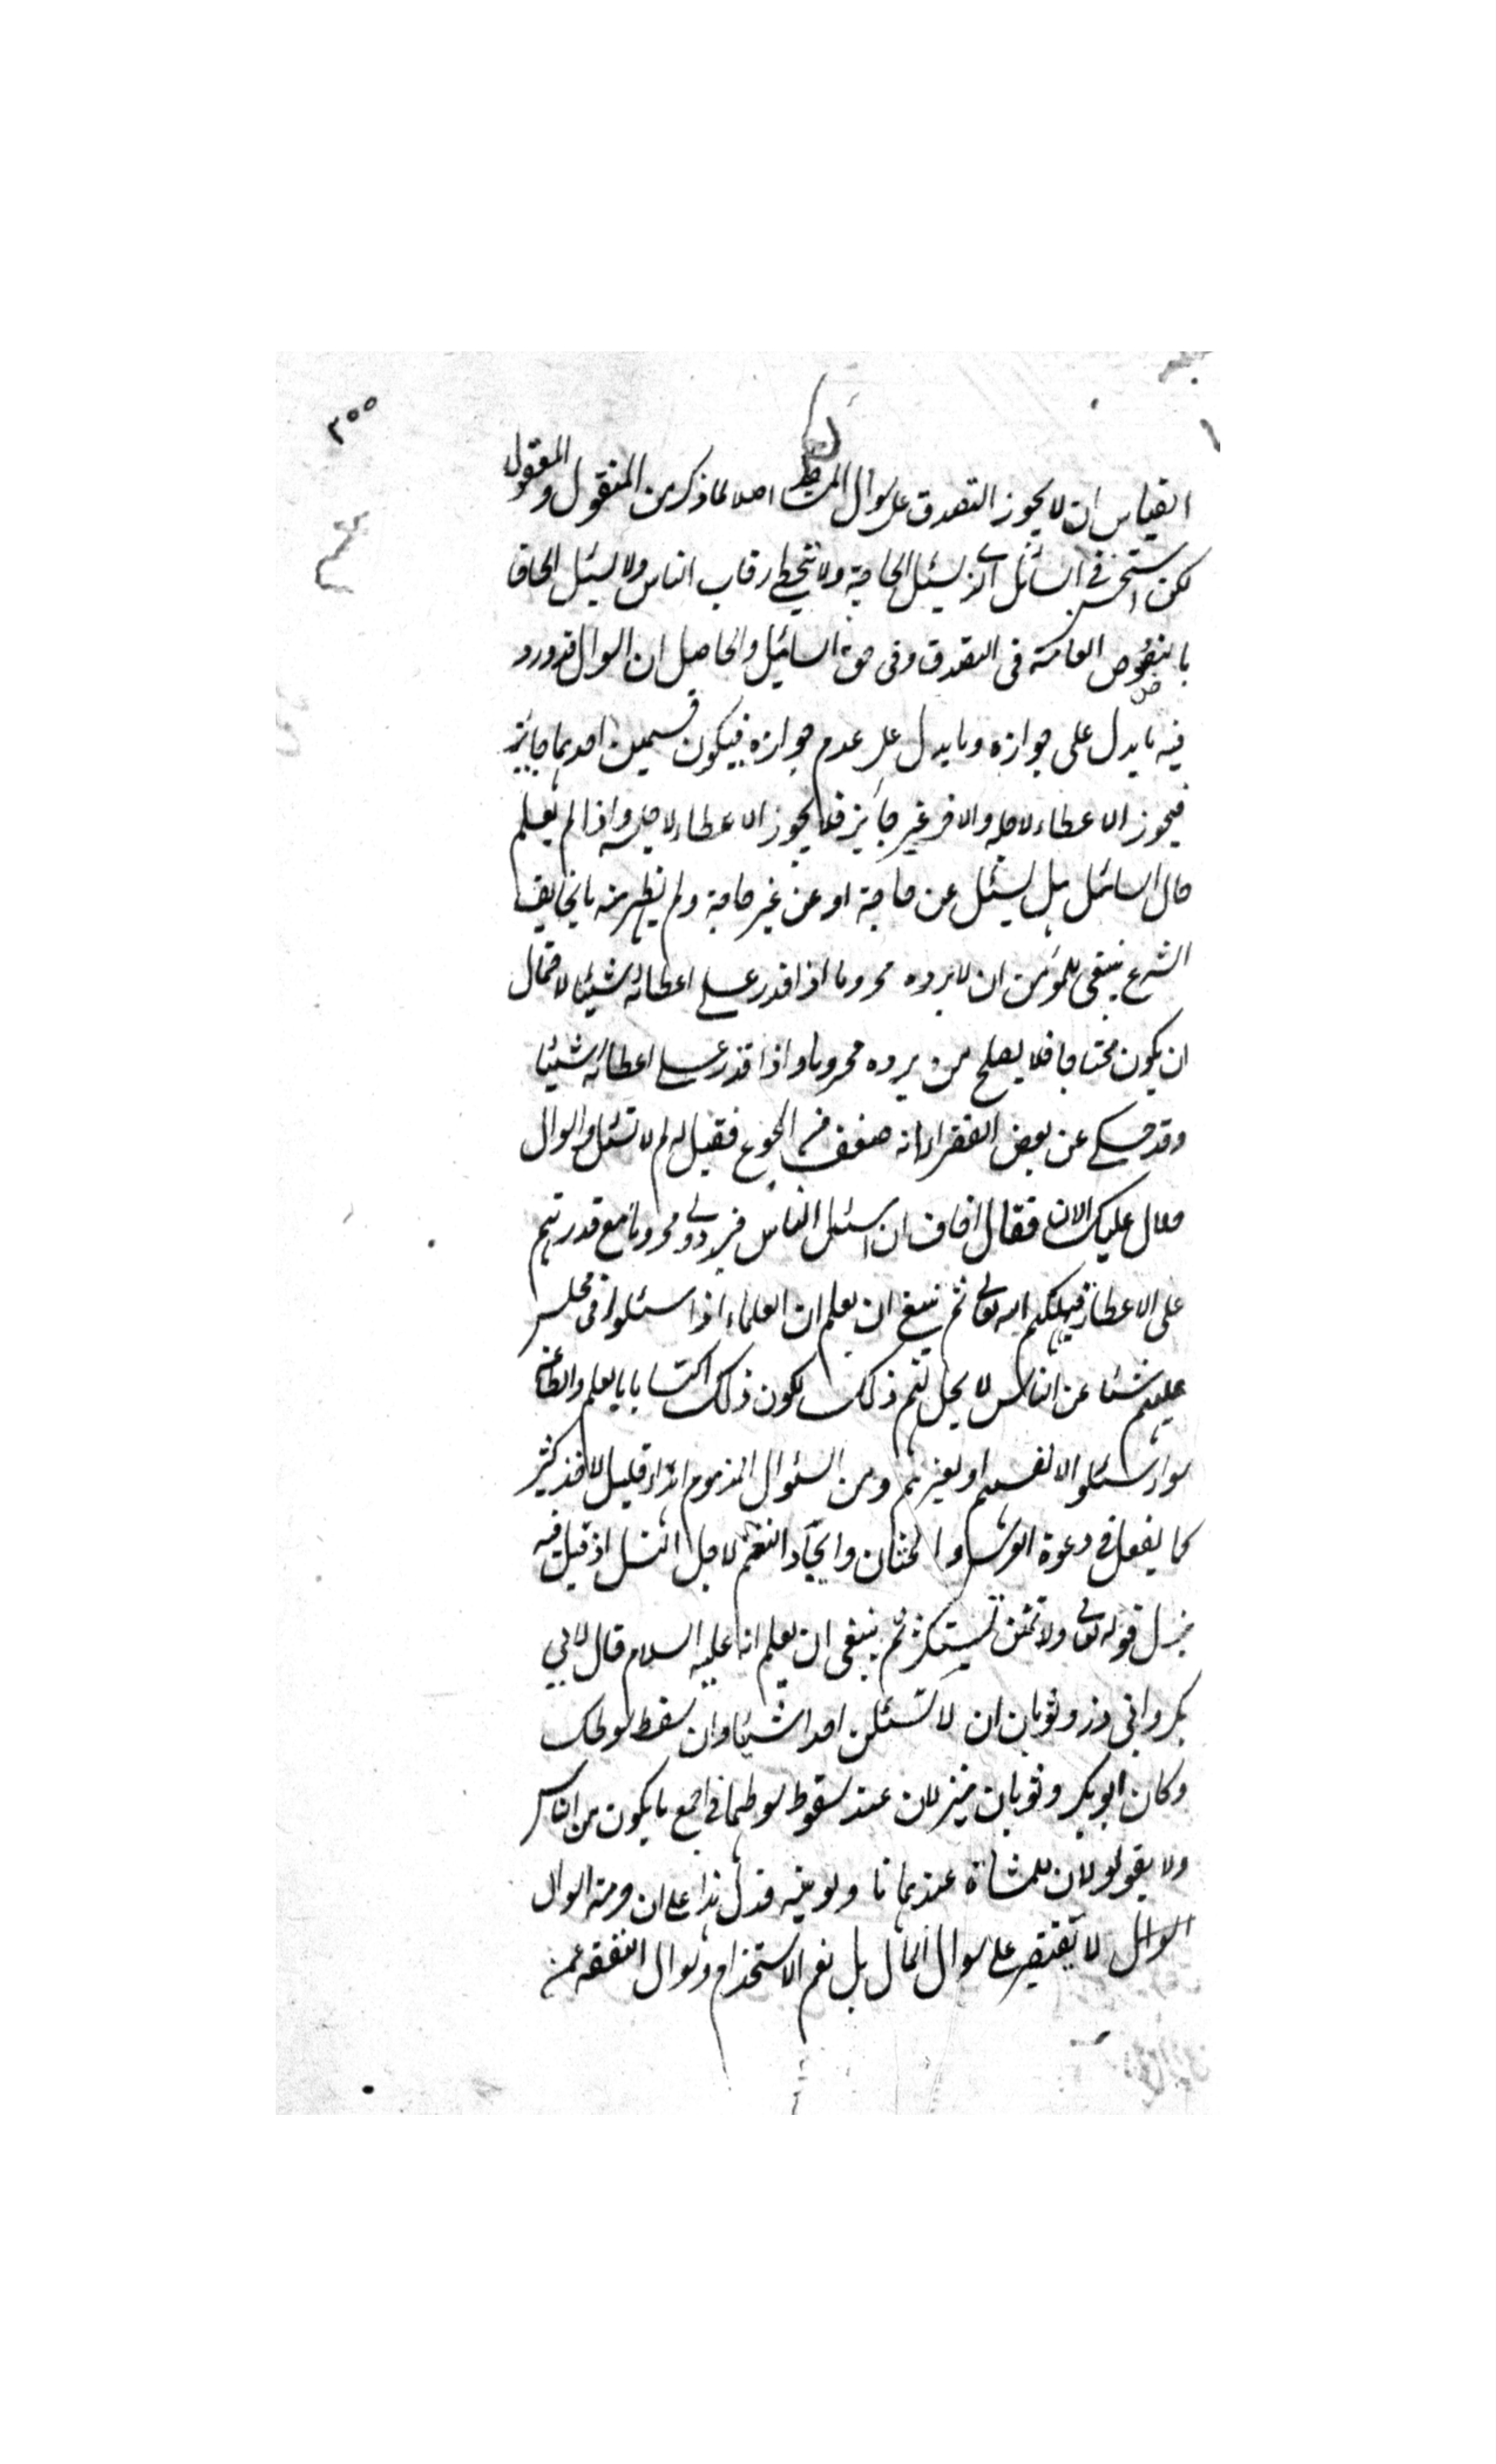 ٣٥٥
القياس ان لا يجوز التصدق على سوال اصلا لما ذكر من المنقول والمعقول
لكن استحسن في السائل الذي يسئل الحاجة ولا يتخطى رقاب الناس ولا يسئل الحاقا
بالنصوص العامة في التصدق وفي حق السائل والحاصل ان السوال قد ورد
فيه ما يدل على جوازه وما يدل على عدم جوازه فيكون قسمين احدهما جائز
فيجوز الاعطاء لاجله والاخر غير جائز فلا يجوز الاعطاء لاجله واذا لم يعلم
حال السائل هل يسئل عن حاجة او عن غير حاجة ولم يظهر منه ما يخالف
الشرع ينبغي للمؤمن ان لا يرده محروما اذا قدر على اعطائه شيئا لاحتمال
ان يكون محتاجا فلا يصلح من يرده محروما واذا قدر على اعطائه شيئا
وقد حكي عن بعض الفقراء انه ضعف من الجوع فقيل له لم لا تسئل والسوال
حلال عليك الان فقال اخاف ان اسئل الناس فيردوني محروما مع قدرتهم
على الاعطاء فيهلكهم الله تعالى ثم ينبغي ان يعلم ان العلماء اذا سئلوا في مجلس
علمهم شيئا عن الناس لا يحل لهم ذلك لكون ذلك اكتسابا بالعلم والطاعة
سواء سئلوا لانفسهم او لغيرهم ومن السئوال المذموم اهداء قليل لاخذ كثير
كما يفعل في دعوة العرس والختان وايجاد النعم لاجل النسل اذ قيل فيه
نزل قوله تعالى ولا تمنن تستكثر ثم ينبغي ان يعلم انه عليه السلام قال لابي
بكر وابي ذر وثوبان ان لا تسئلن احدا شيئا وان سقط سوطك
وكان ابو بكر وثوبان ينزلان عند سقوط سوطهما في اجمع ما يكون من الناس
ولا يقولولان للمشاة عندهما ناولونيه فدل هذا على ان حرمة السوال
السوال لا يقتصر على سوال المال بل نعم الاستخدام وسوال النفقة عمن